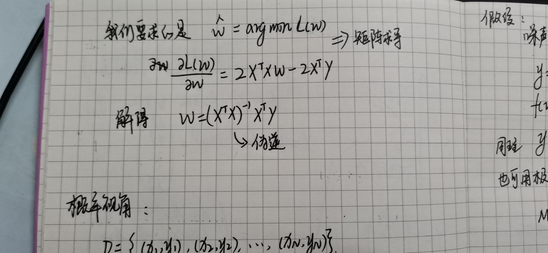 我们要求的是 ŵ = argmin L(w) ⇒ 矩阵求导
∂w ∂L(w)/∂w = 2XᵀXW − 2XᵀY
解得 W = (XᵀX)⁻¹XᵀY
↘ 伪逆
概率视角：
D = { (x₁,y₁), (x₂,y₂), ..., (x_N,y_N)}
假设：
噪声
y=
f(
同理 y
也可用极
M